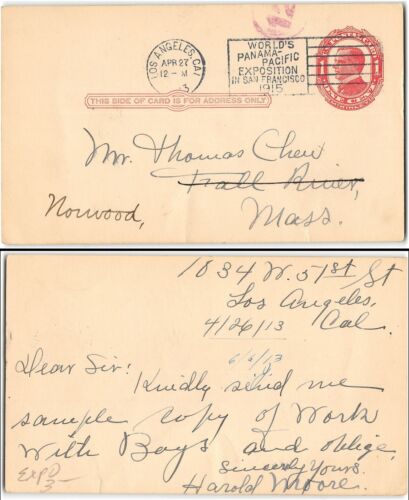 LOS ANGELES, CAL
APR 27
12 - M
3
WORLD'S
PANAMA-
PACIFIC
EXPOSITION
IN SAN FRANCISCO
1915
ONE CENT
THIS SIDE OF CARD IS FOR ADDRESS ONLY
Mr. Thomas Chew
Fall River,
Norwood,
Mass.
1034 W. 51st St
Los Angeles,
4/26/13 Cal.
Dear Sir:
Kindly send me
sample copy of Work
With Boys and oblige,
Sincerely Yours
Harold Moore.